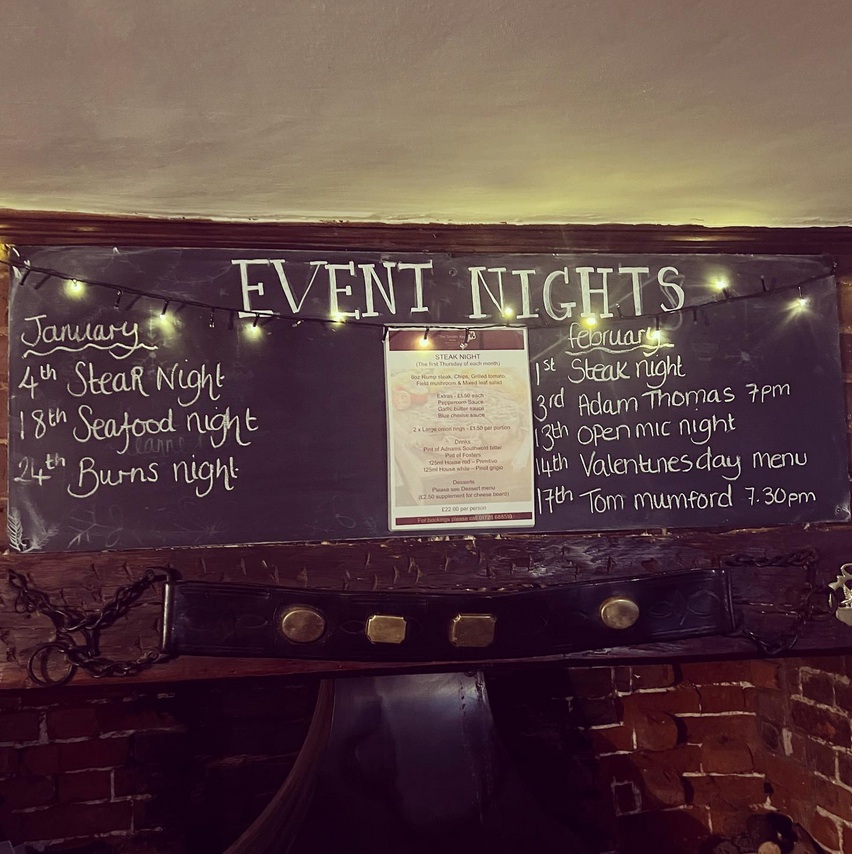 EVENT NIGHTS
January
4th Steak Night
18th Seafood night
24th Burns night
STEAK NIGHT
(The first Thursday of each month)
8oz Rump steak, Chips, Grilled tomato,
Field mushroom & Mixed leaf salad
Extras - £1.50 each
Peppercorn Sauce
Garlic butter sauce
Blue cheese sauce
2 x Large onion rings - £1.50 per portion
Drinks
Pint of Adnams Southwold bitter
Pint of Fosters
125ml House red – Primitivo
125ml House white – Pinot grigio
Desserts
Please see Dessert menu
(£2.50 supplement for cheese board)
£22.00 per person
For bookings please call
february
1st Steak night
3rd Adam Thomas 7pm
13th open mic night
14th Valentinesday menu
17th Tom mumford 7.30pm